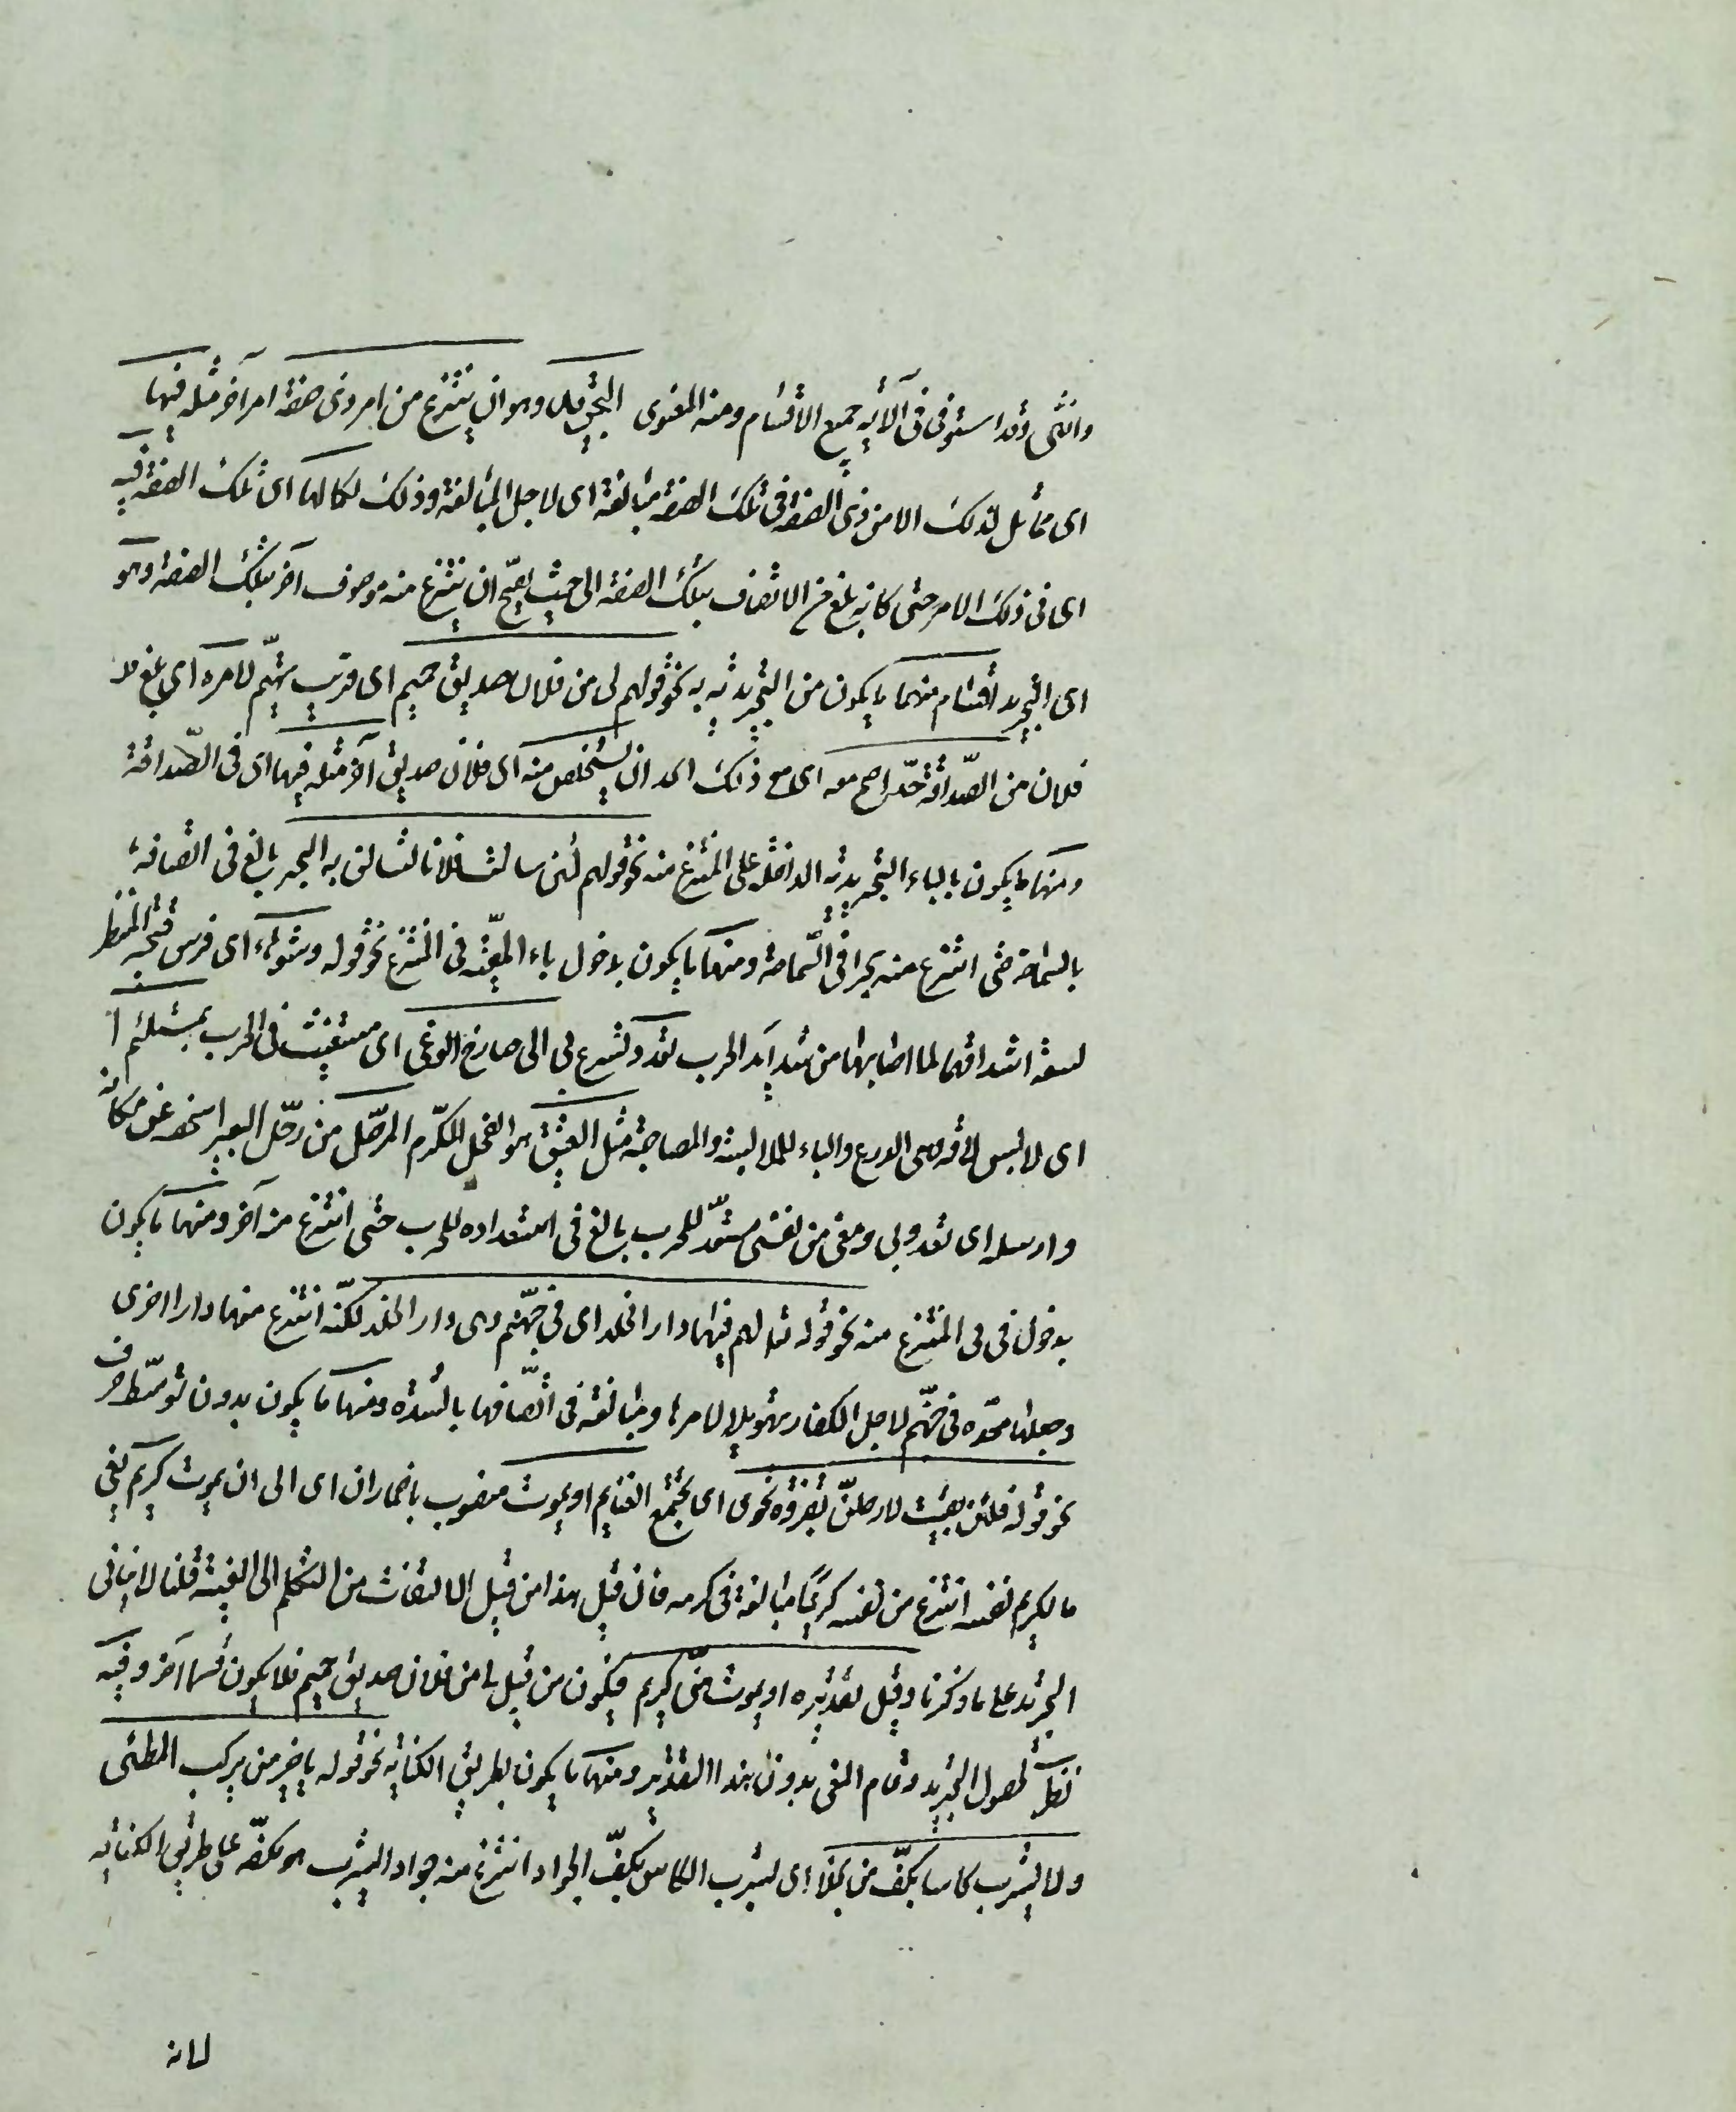 وانثى وقد استوفى فى الآية جميع الاقسام ومنه المعنوى التجريد وهو ان ينتزع من امر ذى صفة امر آخر مثله فيها
اى مماثل لذلك الامر ذى الصفة فى تلك الصفة مبالغة اى لاجل المبالغة وذلك لكمالها اى تلك الصفة فيه
اى فى ذلك الامر حتى كانه بلغ من الاتصاف بتلك الصفة الى حيث يصح ان ينتزع منه موصوف آخر بتلك الصفة وهو
اى التجريد اقسام منها ما يكون من التجريدية به نحو قولهم لى من فلان صديق حميم اى قريب يهتم لامره اى بلغ
فلان من الصداقة حدّا صح معه اى مع ذلك الحد ان يستخلص منه اى فلان صديق آخر مثله فيها اى فى الصّداقة
ومنها ما يكون بالباء التجريدية الداخلة على المنتزع منه نحو قولهم لئن سالت فلانا لتسالن به البحر بالغ فى اتصافه
بالسماحة حتى انتزع منه بحرا فى السّماحة ومنها ما يكون بدخول باء المعيّة فى المنتزع نحو قوله وشوهاء اى فرس قبيح المنظر
لسعة اشداقها لما اصابها من شدايد الحرب تعدو تسرع بى الى صارخ الوغى اى مستغيث فى الحرب بمستلئم
اى لابس لامة وهى الدرع والباء للملابسة والمصاحبة مثل العتيق هو الفحل المكرّم المرحّل من رحّل البعير اشخصه عن مكانه
وارسله اى تعدو بى ومعى من نفسى مستعدّ للحرب بالغ فى استعداده للحرب حتى انتزع منه آخر ومنها ما يكون
بدخول فى فى المنتزع منه نحو قوله تع لهم فيها دار الخلد اى فى جهنّم وهى دار الخلد لكنّه انتزع منها دارا اخرى
وجعلها معدّه فى جهنّم لاجل الكفار تهويلا لامرها ومبالغة فى اتّصافها بالشدّة ومنها ما يكون بدون توسّط حرف
نحو قوله فلئن بقيت لارحلنّ بغزوة نحوى اى تجمع الغنايم او يموت منصوب باضمار ان اى الى ان يموت كريم يعنى
بالكريم نفسه انتزع من نفسه كريمًا مبالغة فى كرمه فان قيل هذا من قبيل الالتفات من التكلم الى الغيبة قلنا لا ينافى
التجريد على ما ذكرنا وقيل تقديره او يموت منّى كريم فيكون من قبيل لى من فلان صديق حميم فلا يكون قسما آخر وفيه
نظر لحصول التجريد وتمام المعنى بدون هذا التقدير ومنها ما يكون بطريق الكناية نحو قوله يا خير من يركب المطىّ
ولا يشرب كاسا بكفّ من بخلا اى يشرب الكاس بكفّ الجواد انتزع منه جوادا يشرب هو بكفّه على طريق الكناية
لانه